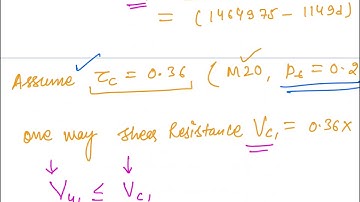 = (1464975 - 1149d)
Assume τc = 0.36 (M20, pt = 0.2
one way shear Resistance Vc1 = 0.36x
Vu1 ≤ Vc1